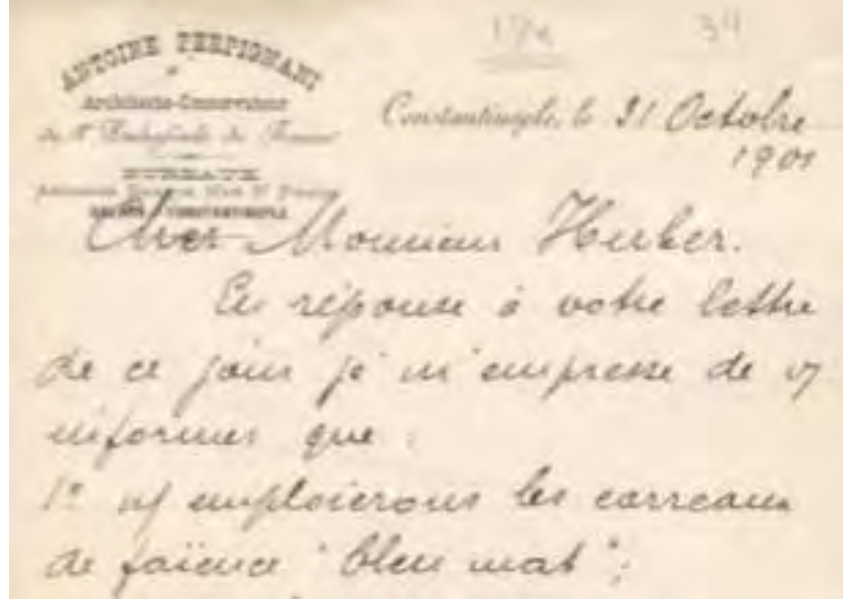 34
ANTOINE PERPIGNANI
Architecte-Conservateur
de
BUREAUX
Constantinople, le 31 Octobre
1901
Cher Monsieur Hubert.
En réponse à votre lettre
de ce jour je m'empresse de v/
informer que :
1º n/ emploierons les carreaux
de faïence "bleu mat";